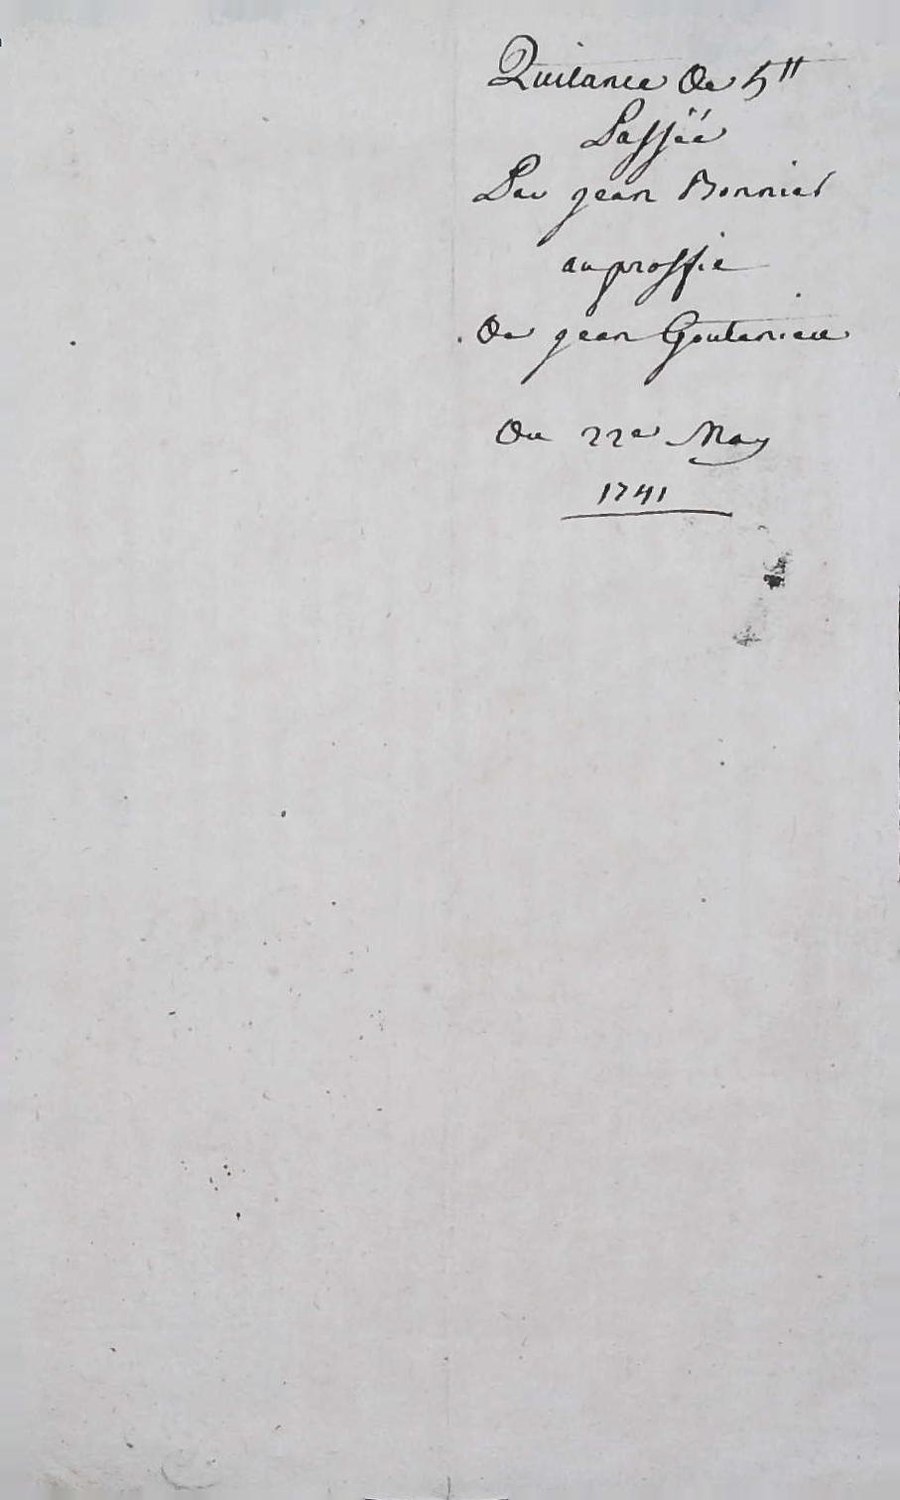 Quitance de 5tt
Passéé
Par jean Bonniot
au proffit
de jean Goutanieu
Du 22e May
1741